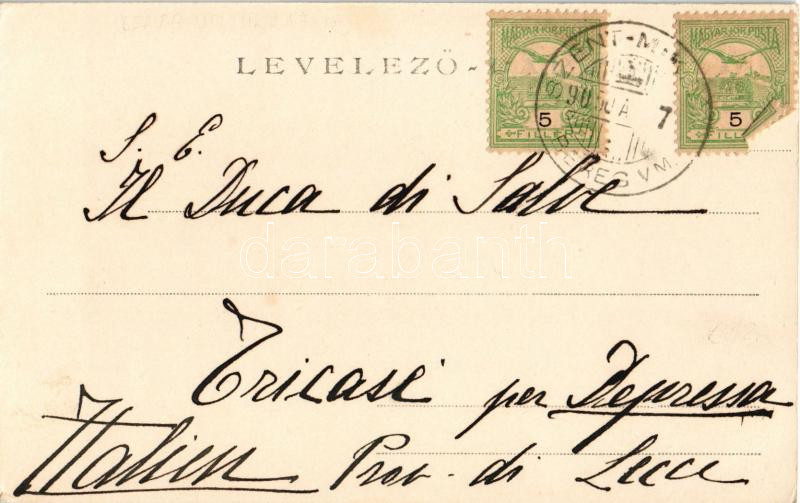 LEVELEZŐ-
MAGYAR KIR. POSTA
5
FILLÉR
MAGYAR KIR. POSTA
5
BEREG VM.
7
S. E.
Il Duca di Salve
darabanth
Tricase per Depressa
Italien Prov. di Lecce